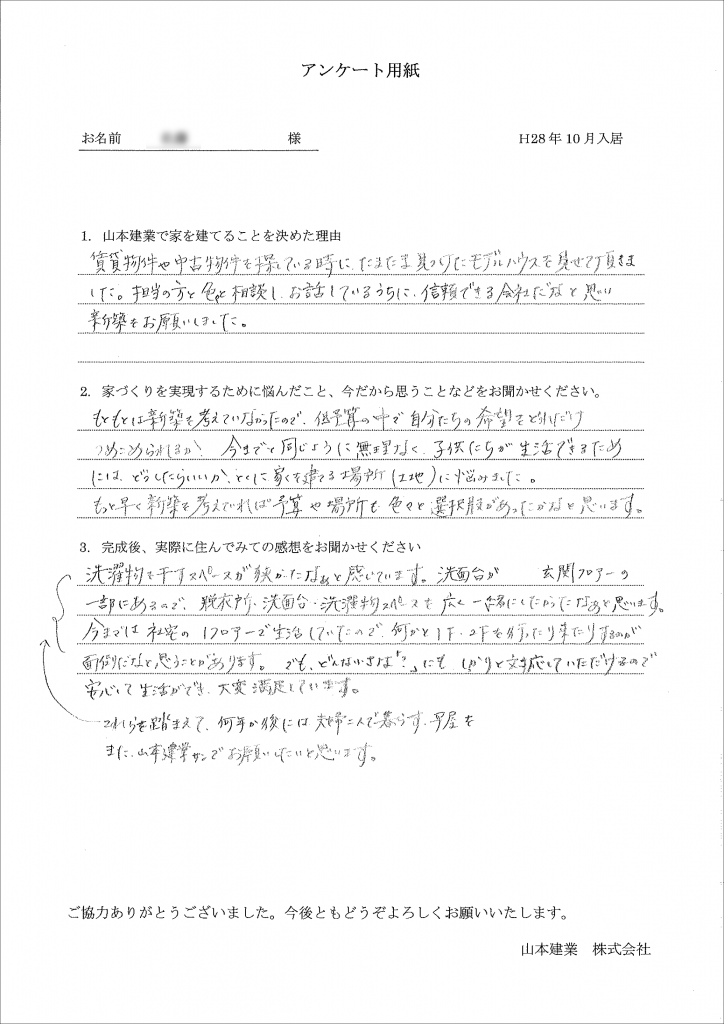 アンケート用紙
お名前 様 H28年10月入居
1. 山本建業で家を建てることを決めた理由
賃貸物件や中古物件を探している時に、たまたま見つけたモデルハウスを見せて頂きま
した。担当の方と色々相談し、お話しているうちに、信頼できる会社だなと思い
新築をお願いしました。
2. 家づくりを実現するために悩んだこと、今だから思うことなどをお聞かせください。
もともとは新築を考えていなかったので、低予算の中で自分たちの希望をどれだけ
つめこめられるか、今までと同じように無理なく、子供たちが生活できるため
には、どうしたらいいか、とくに家を建てる場所（土地）に悩みました。
もっと早く新築を考えていれば予算や場所も色々と選択肢があったかなと思います。
3. 完成後、実際に住んでみての感想をお聞かせください
洗濯物を干すスペースが狭かったなぁと感じています。洗面台が 玄関フロアーの
一部にあるので、脱衣所・洗面台・洗濯物スペースを広く一緒にしたかったなぁと思います。
今までは社宅の1フロアーで生活していたので、何かと1F・2Fを行ったり来たりするのが
面倒だなと思うことがあります。でも、どんな小さな「？」にも しっかりと対応していただけるので
安心して生活ができ、大変満足しています。
これらを踏まえて、何年か後には夫婦二人で暮らす、平屋を
また、山本建業サンでお願いしたいと思います。
ご協力ありがとうございました。今後ともどうぞよろしくお願いいたします。
山本建業 株式会社